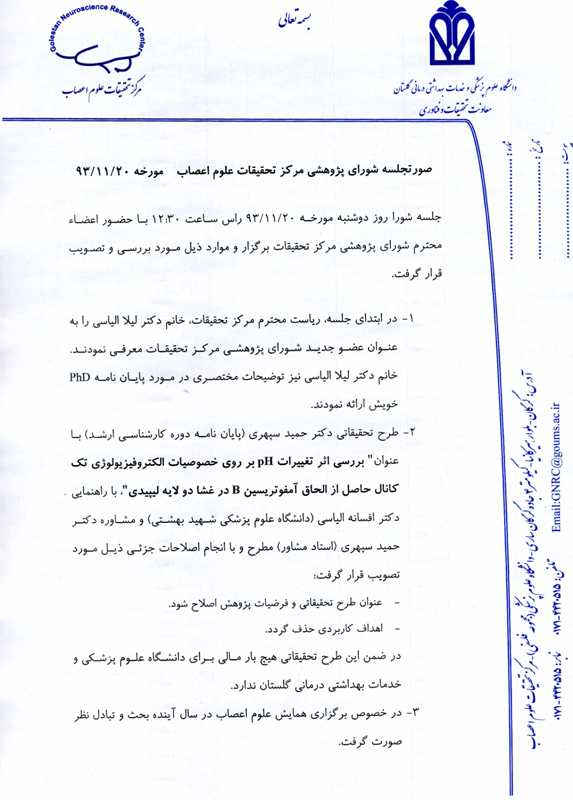 بسمه تعالی
Golestan Neuroscience Research Center
مرکز تحقیقات علوم اعصاب
دانشگاه علوم پزشکی و خدمات بهداشتی درمانی گلستان
معاونت تحقیقات و فناوری
شماره :
تاریخ :
پیوست :
صورتجلسه شورای پژوهشی مرکز تحقیقات علوم اعصاب مورخه ۹۳/۱۱/۲۰
جلسه شورا روز دوشنبه مورخـه ۹۳/۱۱/۲۰ راس ساعت ۱۲:۳۰ با حضور اعضاء
محترم شورای پژوهشی مرکز تحقیقات برگزار و موارد ذیل مورد بررسی و تصویب
قرار گرفت.
۱- در ابتدای جلسه، ریاست محترم مرکز تحقیقات، خانم دکتر لیلا الیاسی را به
عنـوان عضو جدیـد شـورای پژوهشـی مرکـز تحقیقـات معرفـی نمودنـد.
خانم دکتر لیلا الیاسی نیز توضیحات مختصری در مورد پایان نامه PhD
خویش ارائه نمودند.
۲- طرح تحقیقاتی دکتر حمید سپهری (پایان نامه دوره کارشناسـی ارشـد) بـا
عنوان" بررسی اثر تغییرات pH بر روی خصوصیات الکتروفیزیولوژی تک
کانال حاصل از الحاق آمفوتریسین B در غشا دو لایه لیپیدی"، با راهنمایی
دکتر افسانه الیاسی (دانشگاه علوم پزشکی شـهید بهشـتی) و مشـاوره دکتـر
حمید سپهری (استاد مشاور) مطرح و با انجام اصلاحات جزئـی ذیـل مـورد
تصویب قرار گرفت:
- عنوان طرح تحقیقاتی و فرضیات پژوهش اصلاح شود.
- اهداف کاربردی حذف گردد.
در ضمن این طرح تحقیقاتی هیچ بار مـالی بـرای دانشـگاه علـوم پزشـکی و
خدمات بهداشتی درمانی گلستان ندارد.
۳- در خصوص برگزاری همایش علوم اعصاب در سال آینده بحث و تبادل نظر
صورت گرفت.
آدرس: گرگان- -دانشگاه علوم پزشکی -مرکز تحقیقات علوم اعصاب
تلفن: ۴۴۲۰۵۱۵-۰۱۷۱ نمابر: ۴۴۲۰۵۱۵-۰۱۷۱
Email:GNRC@goums.ac.ir